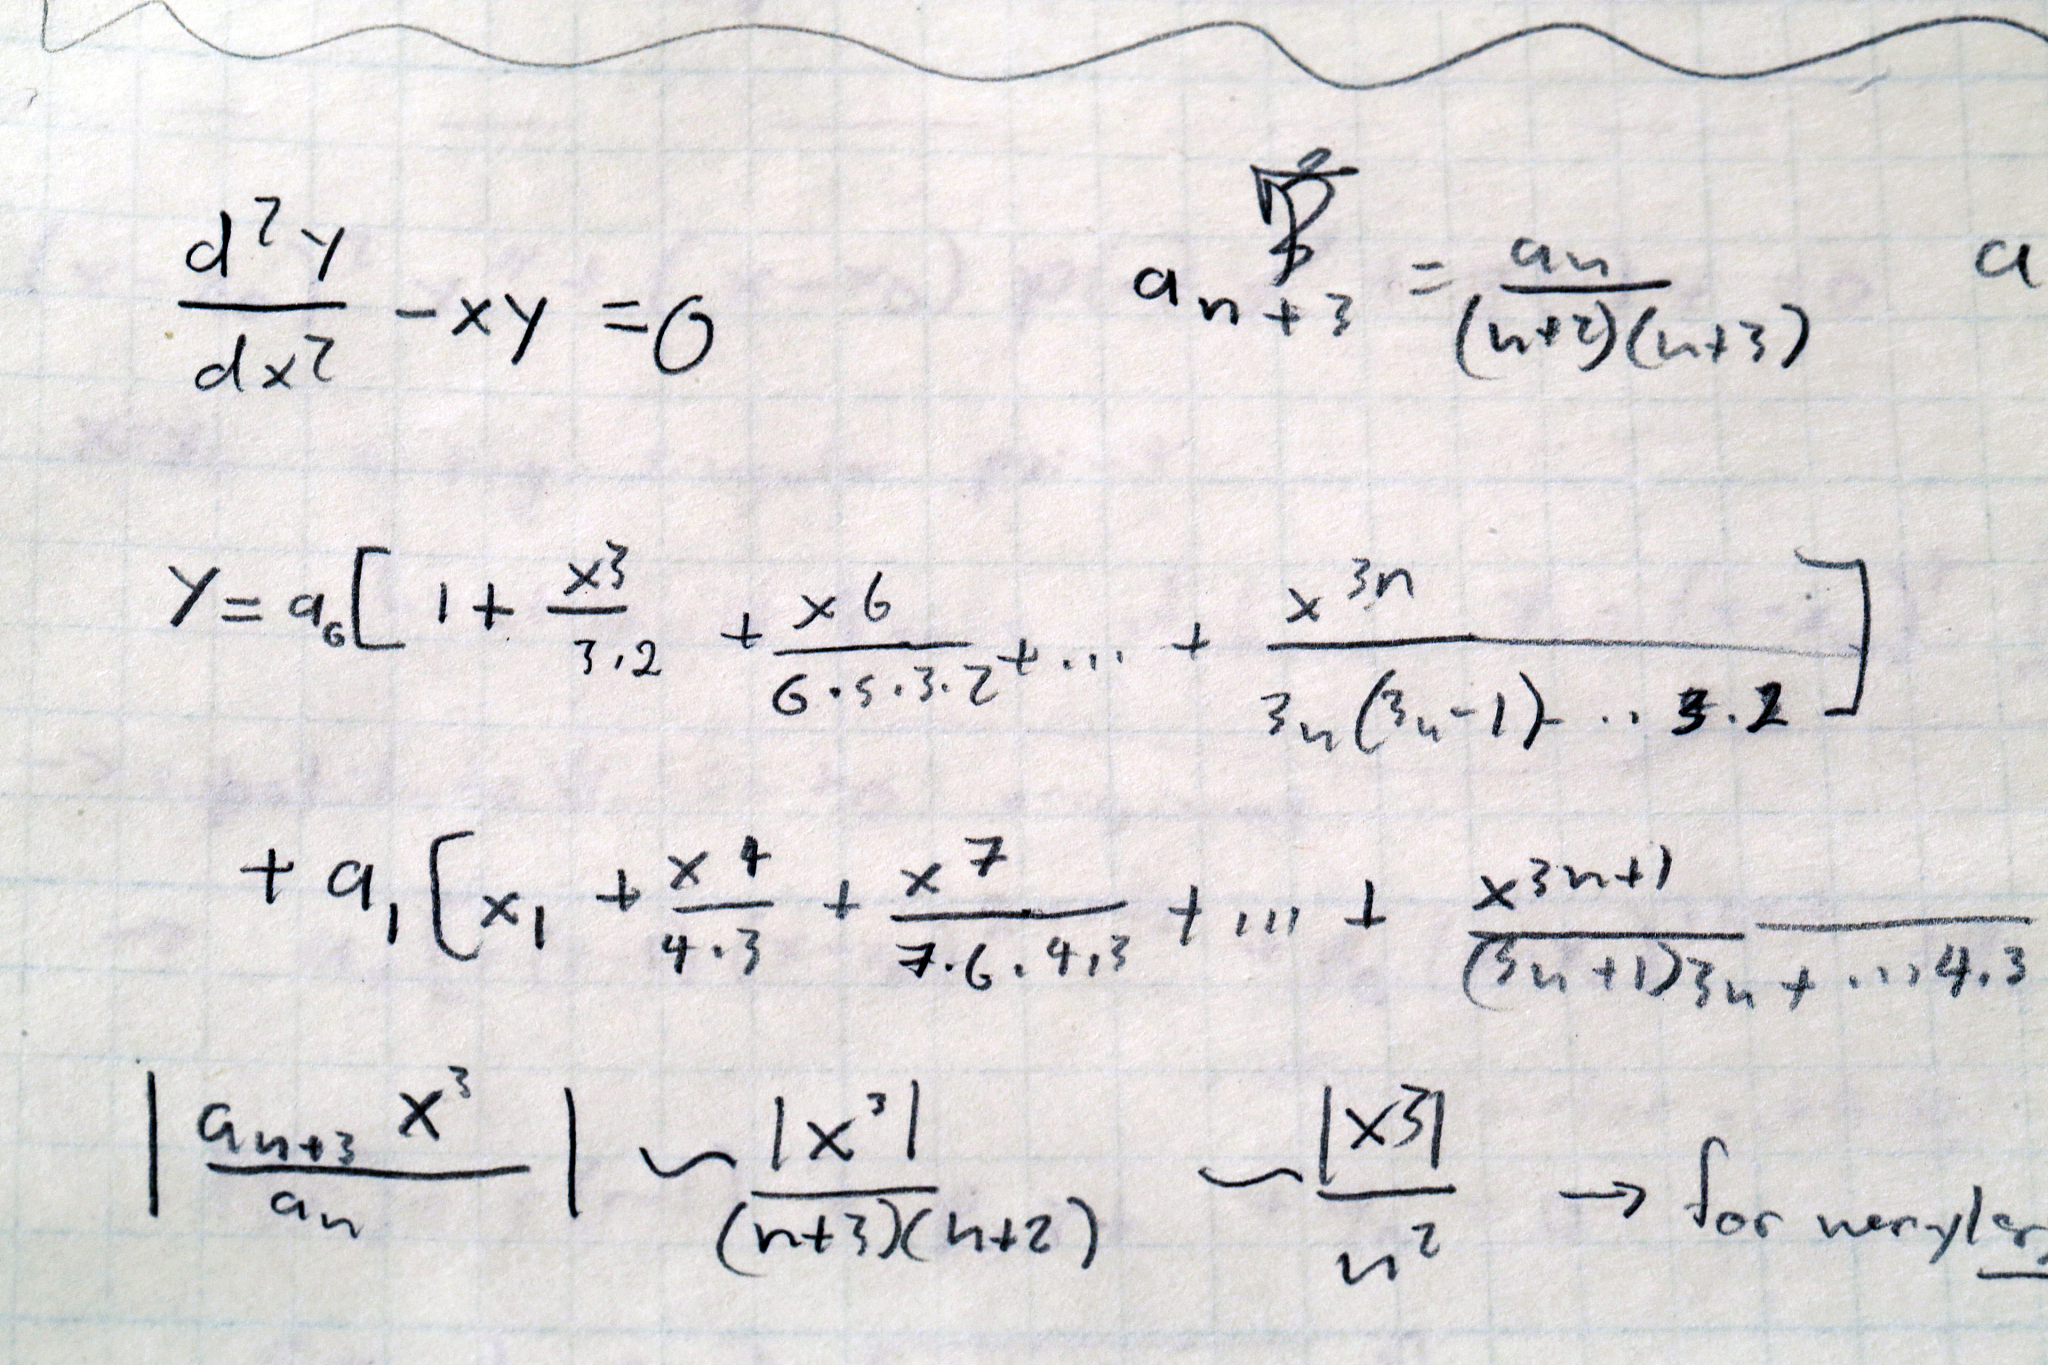 d²y/dx² - xy = 0    aₙ₊₃ = aₙ/(n+2)(n+3)    a
y = a₀[1 + x³/3.2 + x⁶/6·5·3·2 + ... + x³ⁿ/3n(3n-1)...3.2]
+ a₁[x₁ + x⁴/4·3 + x⁷/7·6·4·3 + ... + x³ⁿ⁺¹/(3n+1)3n+...4.3
|aₙ₊₃ x³/aₙ| ~ |x³|/(n+3)(n+2) ~ |x3|/n² → for